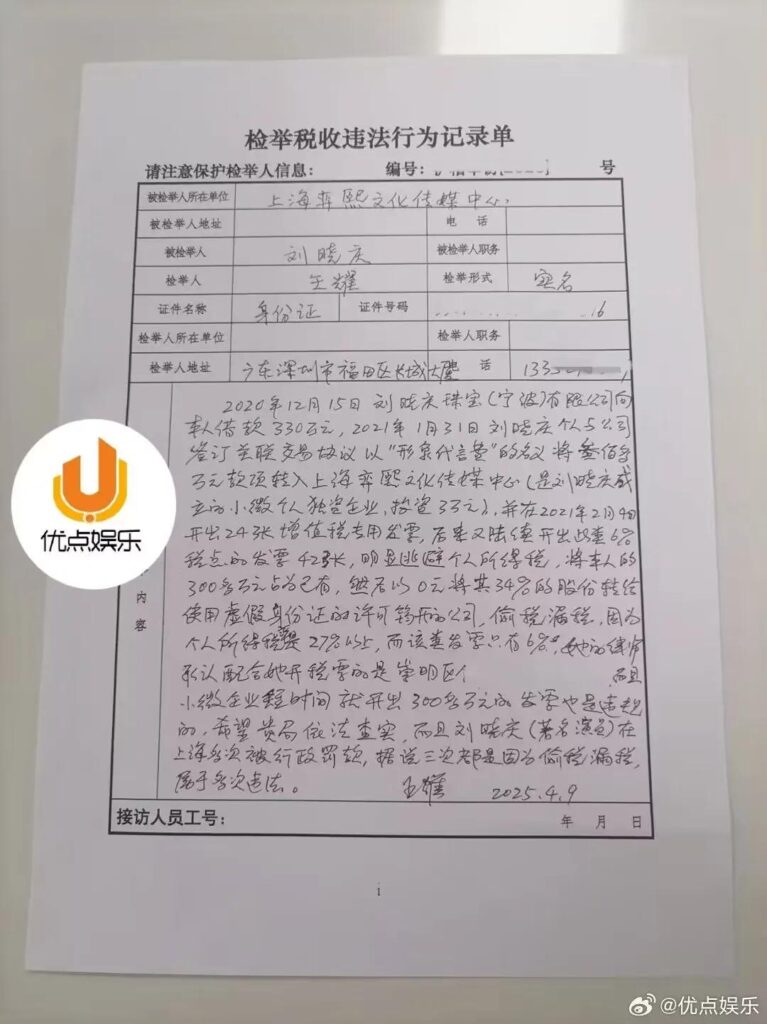 检举税收违法行为记录单
请注意保护检举人信息： 编号： 号
被检举人所在单位 上海弈熙文化传媒中心
被检举人地址 电 话
被检举人 刘晓庆 被检举人职务
检举人 王耀 检举形式 实名
证件名称 身份证 证件号码 16
检举人所在单位 检举人职务
检举人地址 广东深圳市福田区长城大厦 话 133
2020年12月15日刘晓庆珠宝(宁波)有限公司向
本人借款330万元，2021年1月31日刘晓庆个人与公司
签订关联交易协议以"形象代言费"的名义将叁佰多
万元款项转入上海弈熙文化传媒中心(是刘晓庆成
立的小微个人独资企业，投资3万元)，并在2021年2月4日
开出24张增值税专用发票，后来又陆续开出此类6%
税点的发票42张，明显逃避个人所得税，将本人的
300多万元占为已有，然后以0元将其34%的股份转给
使用虚假身份证的许可筠开的公司，偷税漏税，因为
个人所得税是27%以上，而该类发票只有6%，她的律师
承认配合她开税票的是崇明区个 而且
小微企业短时间就开出300多万元的发票也是违规
的，希望贵局依法查实，而且刘晓庆(著名演员)在
上海多次被行政罚款，据说三次都是因为偷税漏税，
属于多次违法。 王耀 2025.4.9
内容
接访人员工号： 年 月 日
i
优点娱乐
@优点娱乐